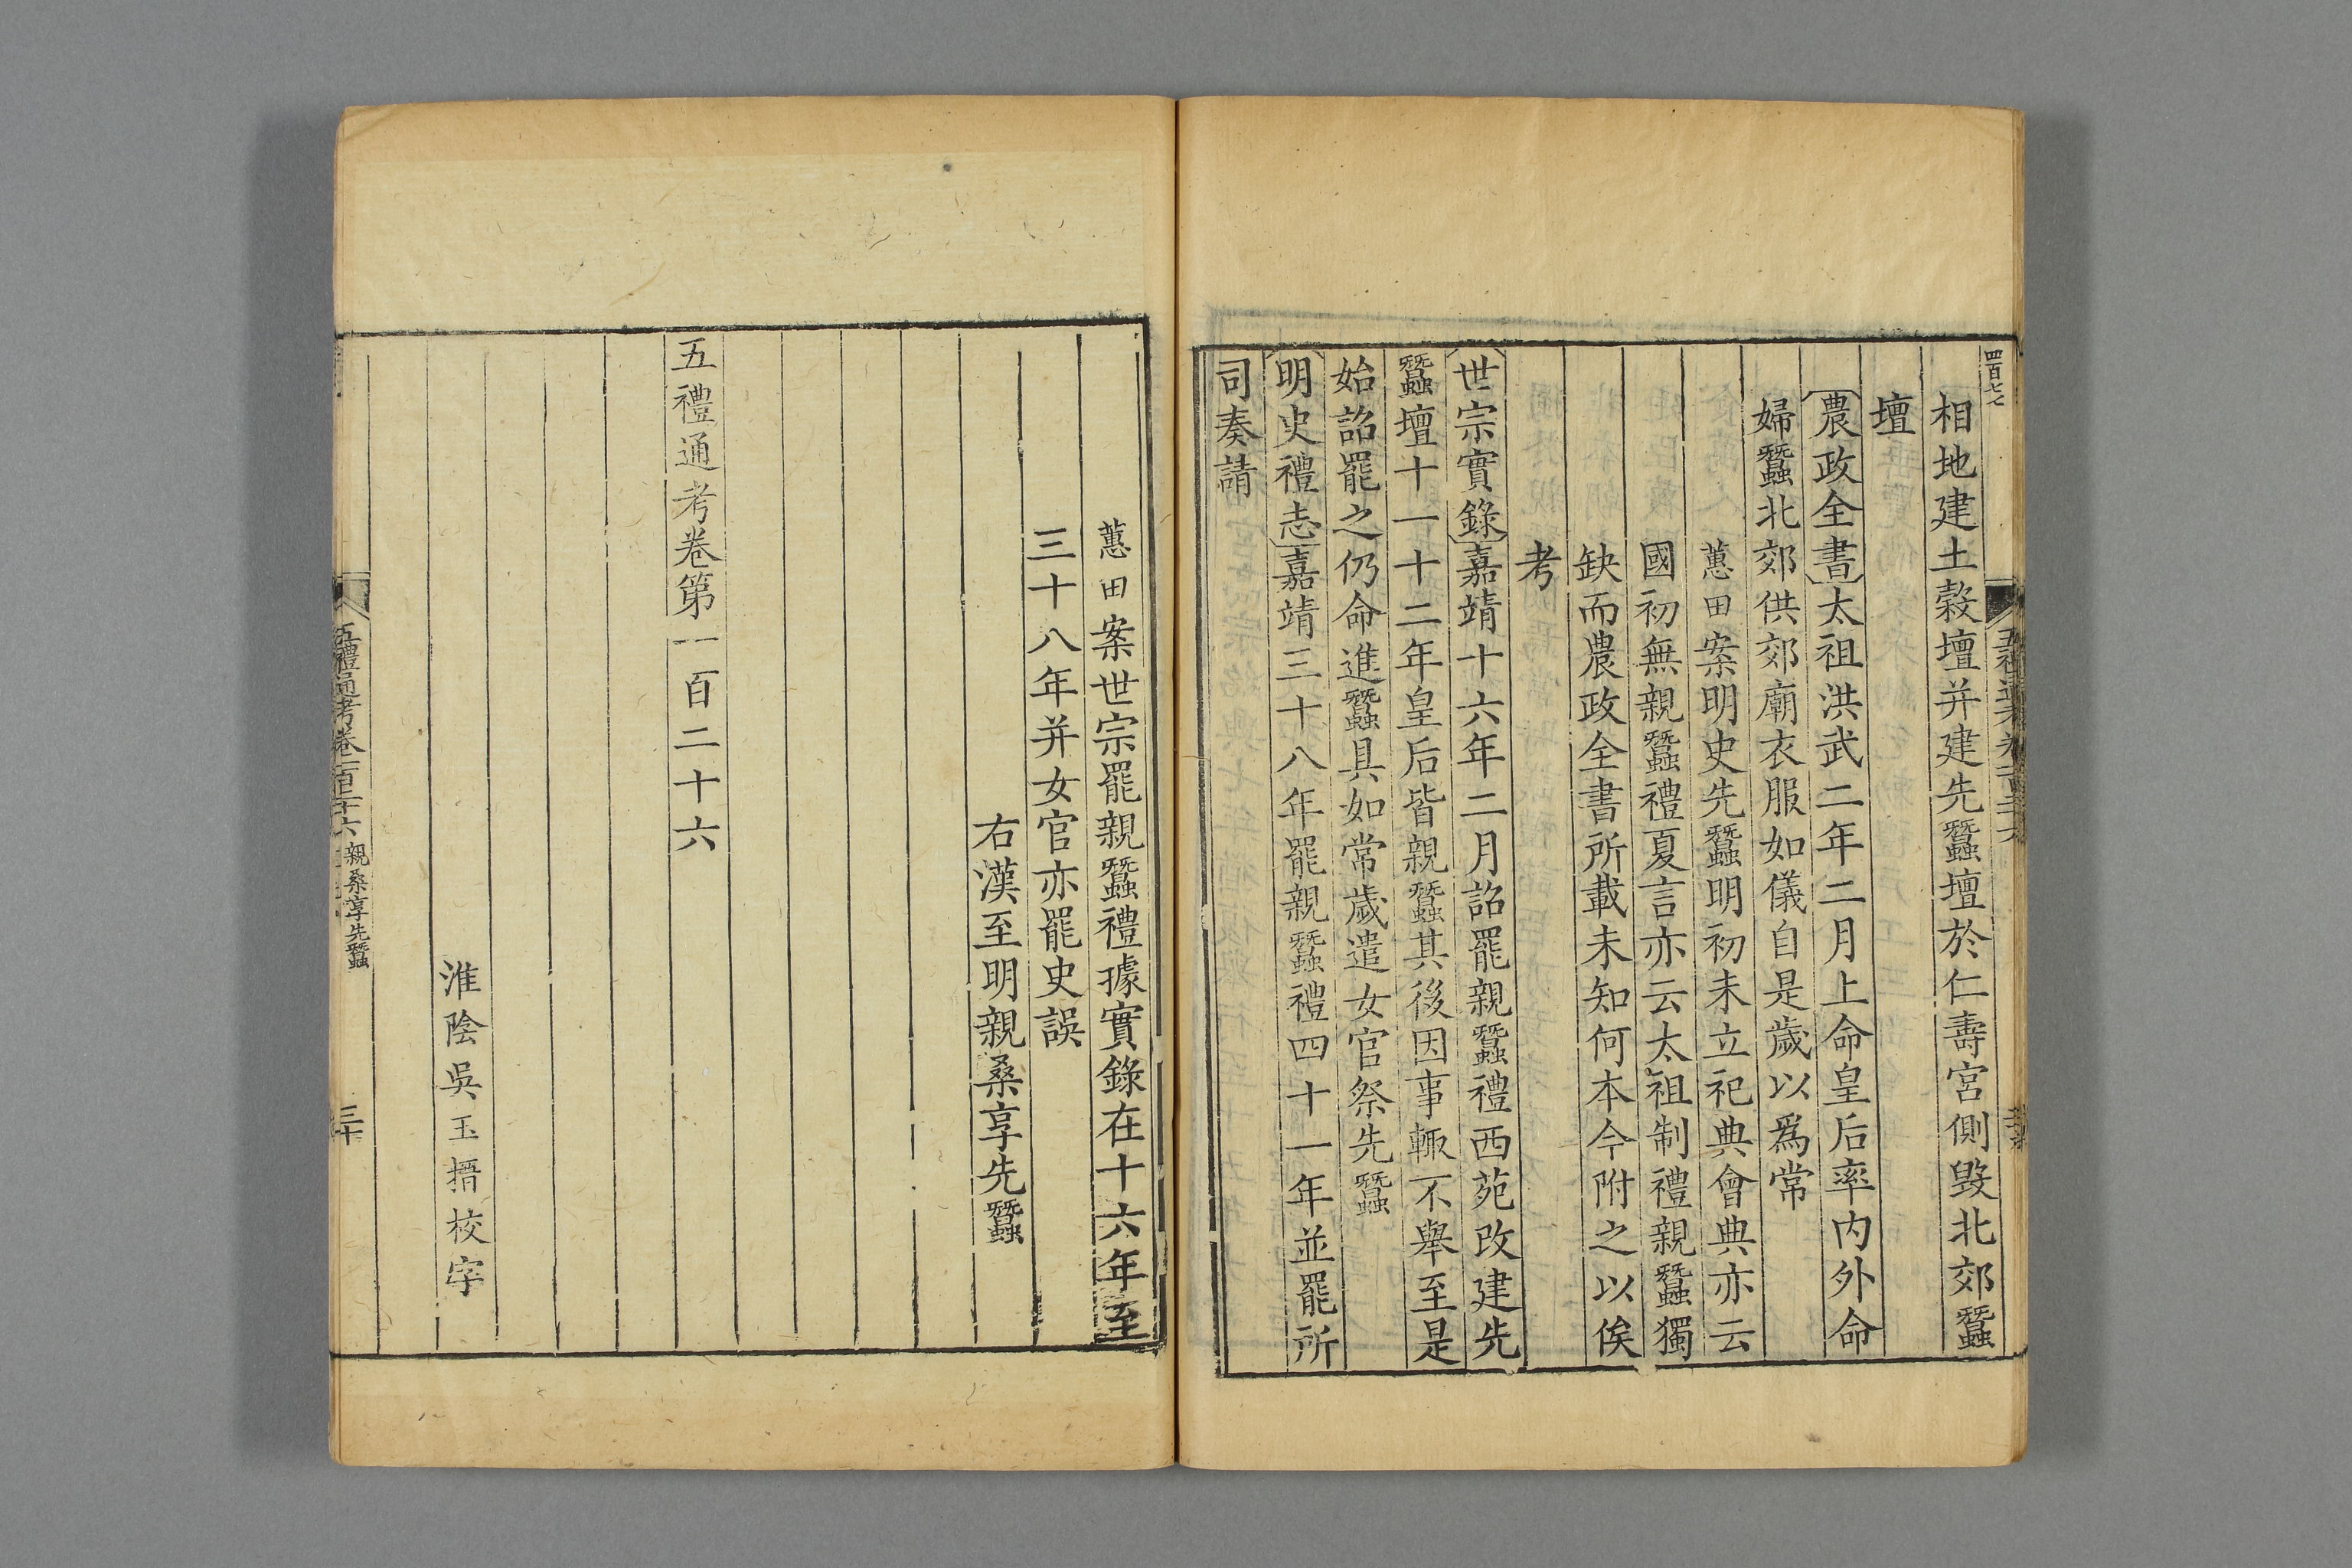 四百七七
相地建土穀壇并建先蠶壇於仁壽宮側毀北郊蠶
壇
農政全書太祖洪武二年二月上命皇后率内外命
婦蠶北郊供郊廟衣服如儀自是歲以爲常
蕙田案明史先蠶明初未立祀典會典亦云
國初無親蠶禮夏言亦云太祖制禮親蠶獨
缺而農政全書所載未知何本今附之以俟
考
世宗實錄嘉靖十六年二月詔罷親蠶禮西苑改建先
蠶壇十一十二年皇后皆親蠶其後因事輙不舉至是
始詔罷之仍命進蠶具如常歲遣女官祭先蠶
明史禮志嘉靖三十八年罷親蠶禮四十一年並罷所
司奏請
蕙田案世宗罷親蠶禮據實錄在十六年至
三十八年并女官亦罷史誤
右漢至明親桑享先蠶
五禮通考卷第一百二十六
淮陰吳玉搢校字
五禮通考卷一百二十六 親桑享先蠶 三十